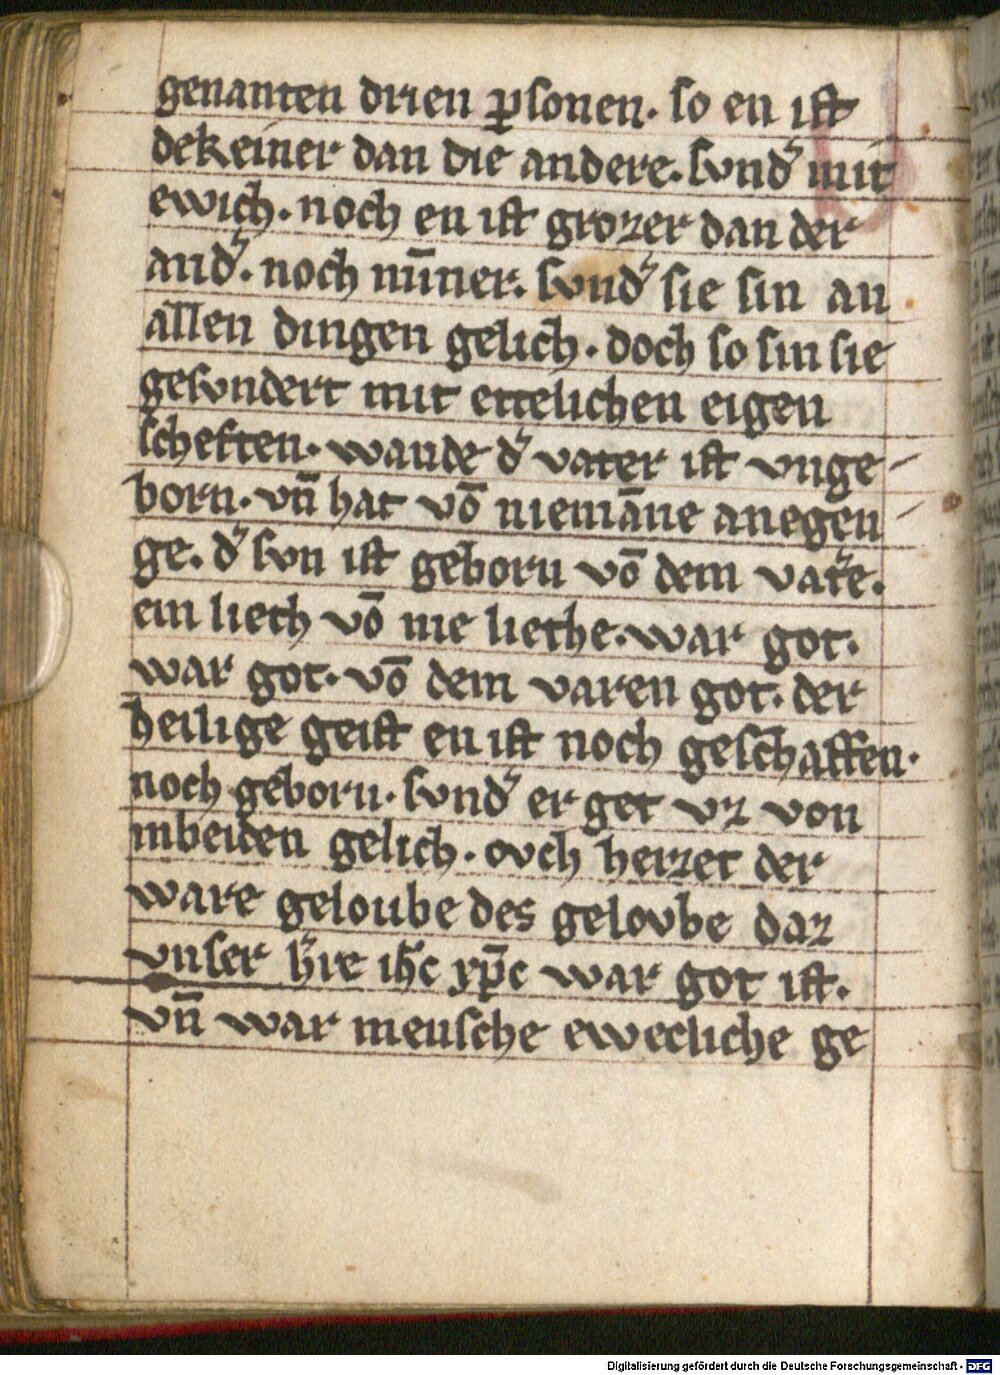 genanten drien ꝑsonen. so en ist
dekeiner dan die andere. sund᷑ mit
ewich. noch en ist grozer dan der
and᷑. noch min̄er. sund᷑ sie sin an
allen dingen gelich. doch so sin sie
gesvndert mit ettelichen eigen
scheften. wande d᷑ vater ist vnge-
born. vn̄ hat vō niemāne anegen-
ge. d᷑ svn ist geborn vō dem vat᷑e.
ein lieth vō me liethe. war got.
war got. vō dem waren got. der
heilige geist en ist noch geschaffen.
noch geborn. svnd᷑ er get vz von
in beiden gelich. ovch herzet der
ware geloube des gelovbe daz
vnser h᷑re ih̄c xp̄c war got ist.
vn̄ war mensche ewecliche ge
Digitalisierung gefördert durch die Deutsche Forschungsgemeinschaft - DFG